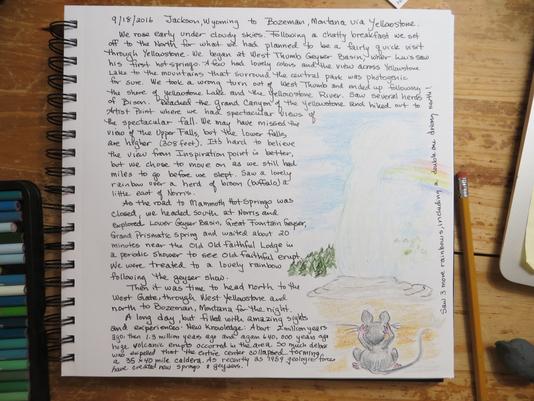 9/18/2016 Jackson, Wyoming to Bozeman, Montana via Yellowstone.
We rose early under cloudy skies. Following a chatty breakfast we set
off to the North for what we had planned to be a fairly quick visit
through Yellowstone. We began at West Thumb Geyser Basin, where saw
his first hot springs. Also had lovely colors and the view across Yellowstone
Lake to the mountains that surround the central park was photogenic
for sure. We took a wrong turn out of West Thumb and ended up following
the shore of Yellowstone Lake and the Yellowstone River. Saw several herds
of Bison. Reached the Grand Canyon of the Yellowstone and hiked out to
Artist Point where we had spectacular views of
the spectacular fall. We may have missed the
view of the Upper Falls, but the lower falls
are higher (308 feet). It's hard to believe
the view from Inspiration point is better,
but we chose to move on as we still had
miles to go before we slept. Saw a lovely
rainbow over a herd of bison (buffalo) a
little east of Norris.
As the road to Mammoth Hot Springs was
closed, we headed south at Norris and
explored Lower Geyser Basin, Great Fountain Geyser,
Grand Prismatic Spring and waited about 20
minutes near the Old Old Faithful Lodge in
a periodic shower to see Old Faithful erupt.
We were treated to a lovely rainbow
following the geyser show.
Then it was time to head north to the
West Gate, through West Yellowstone and
north to Bozeman, Montana for the night.
A long day, but filled with amazing sights
and experiences. New knowledge: About 2 million years
ago, then 1.3 million years ago and again 640,000 years ago
huge volcanic erupts occurred in the area. So much debris
was expelled that the entire center collapsed forming
a 35 x 40 mile caldera. As recently as 1959 geologic forces
have created new springs & geysers.
Saw 3 more rainbows, including a double one driving north!